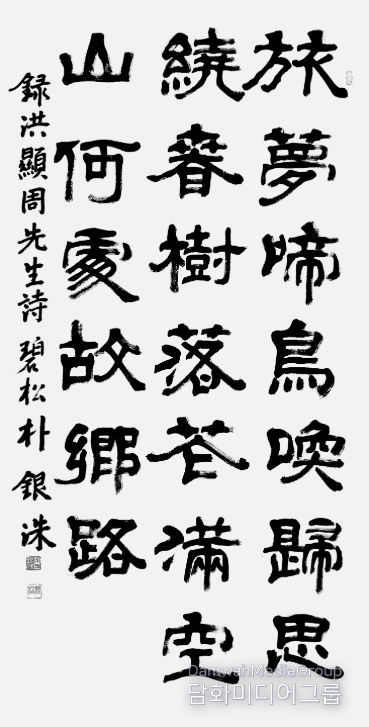 旅夢啼鳥喚歸思
繞春樹落花滿空
山何處故鄉路
録洪顯周先生詩 碧松 朴銀洙
DamwahMediaGroup
담화미디어그룹